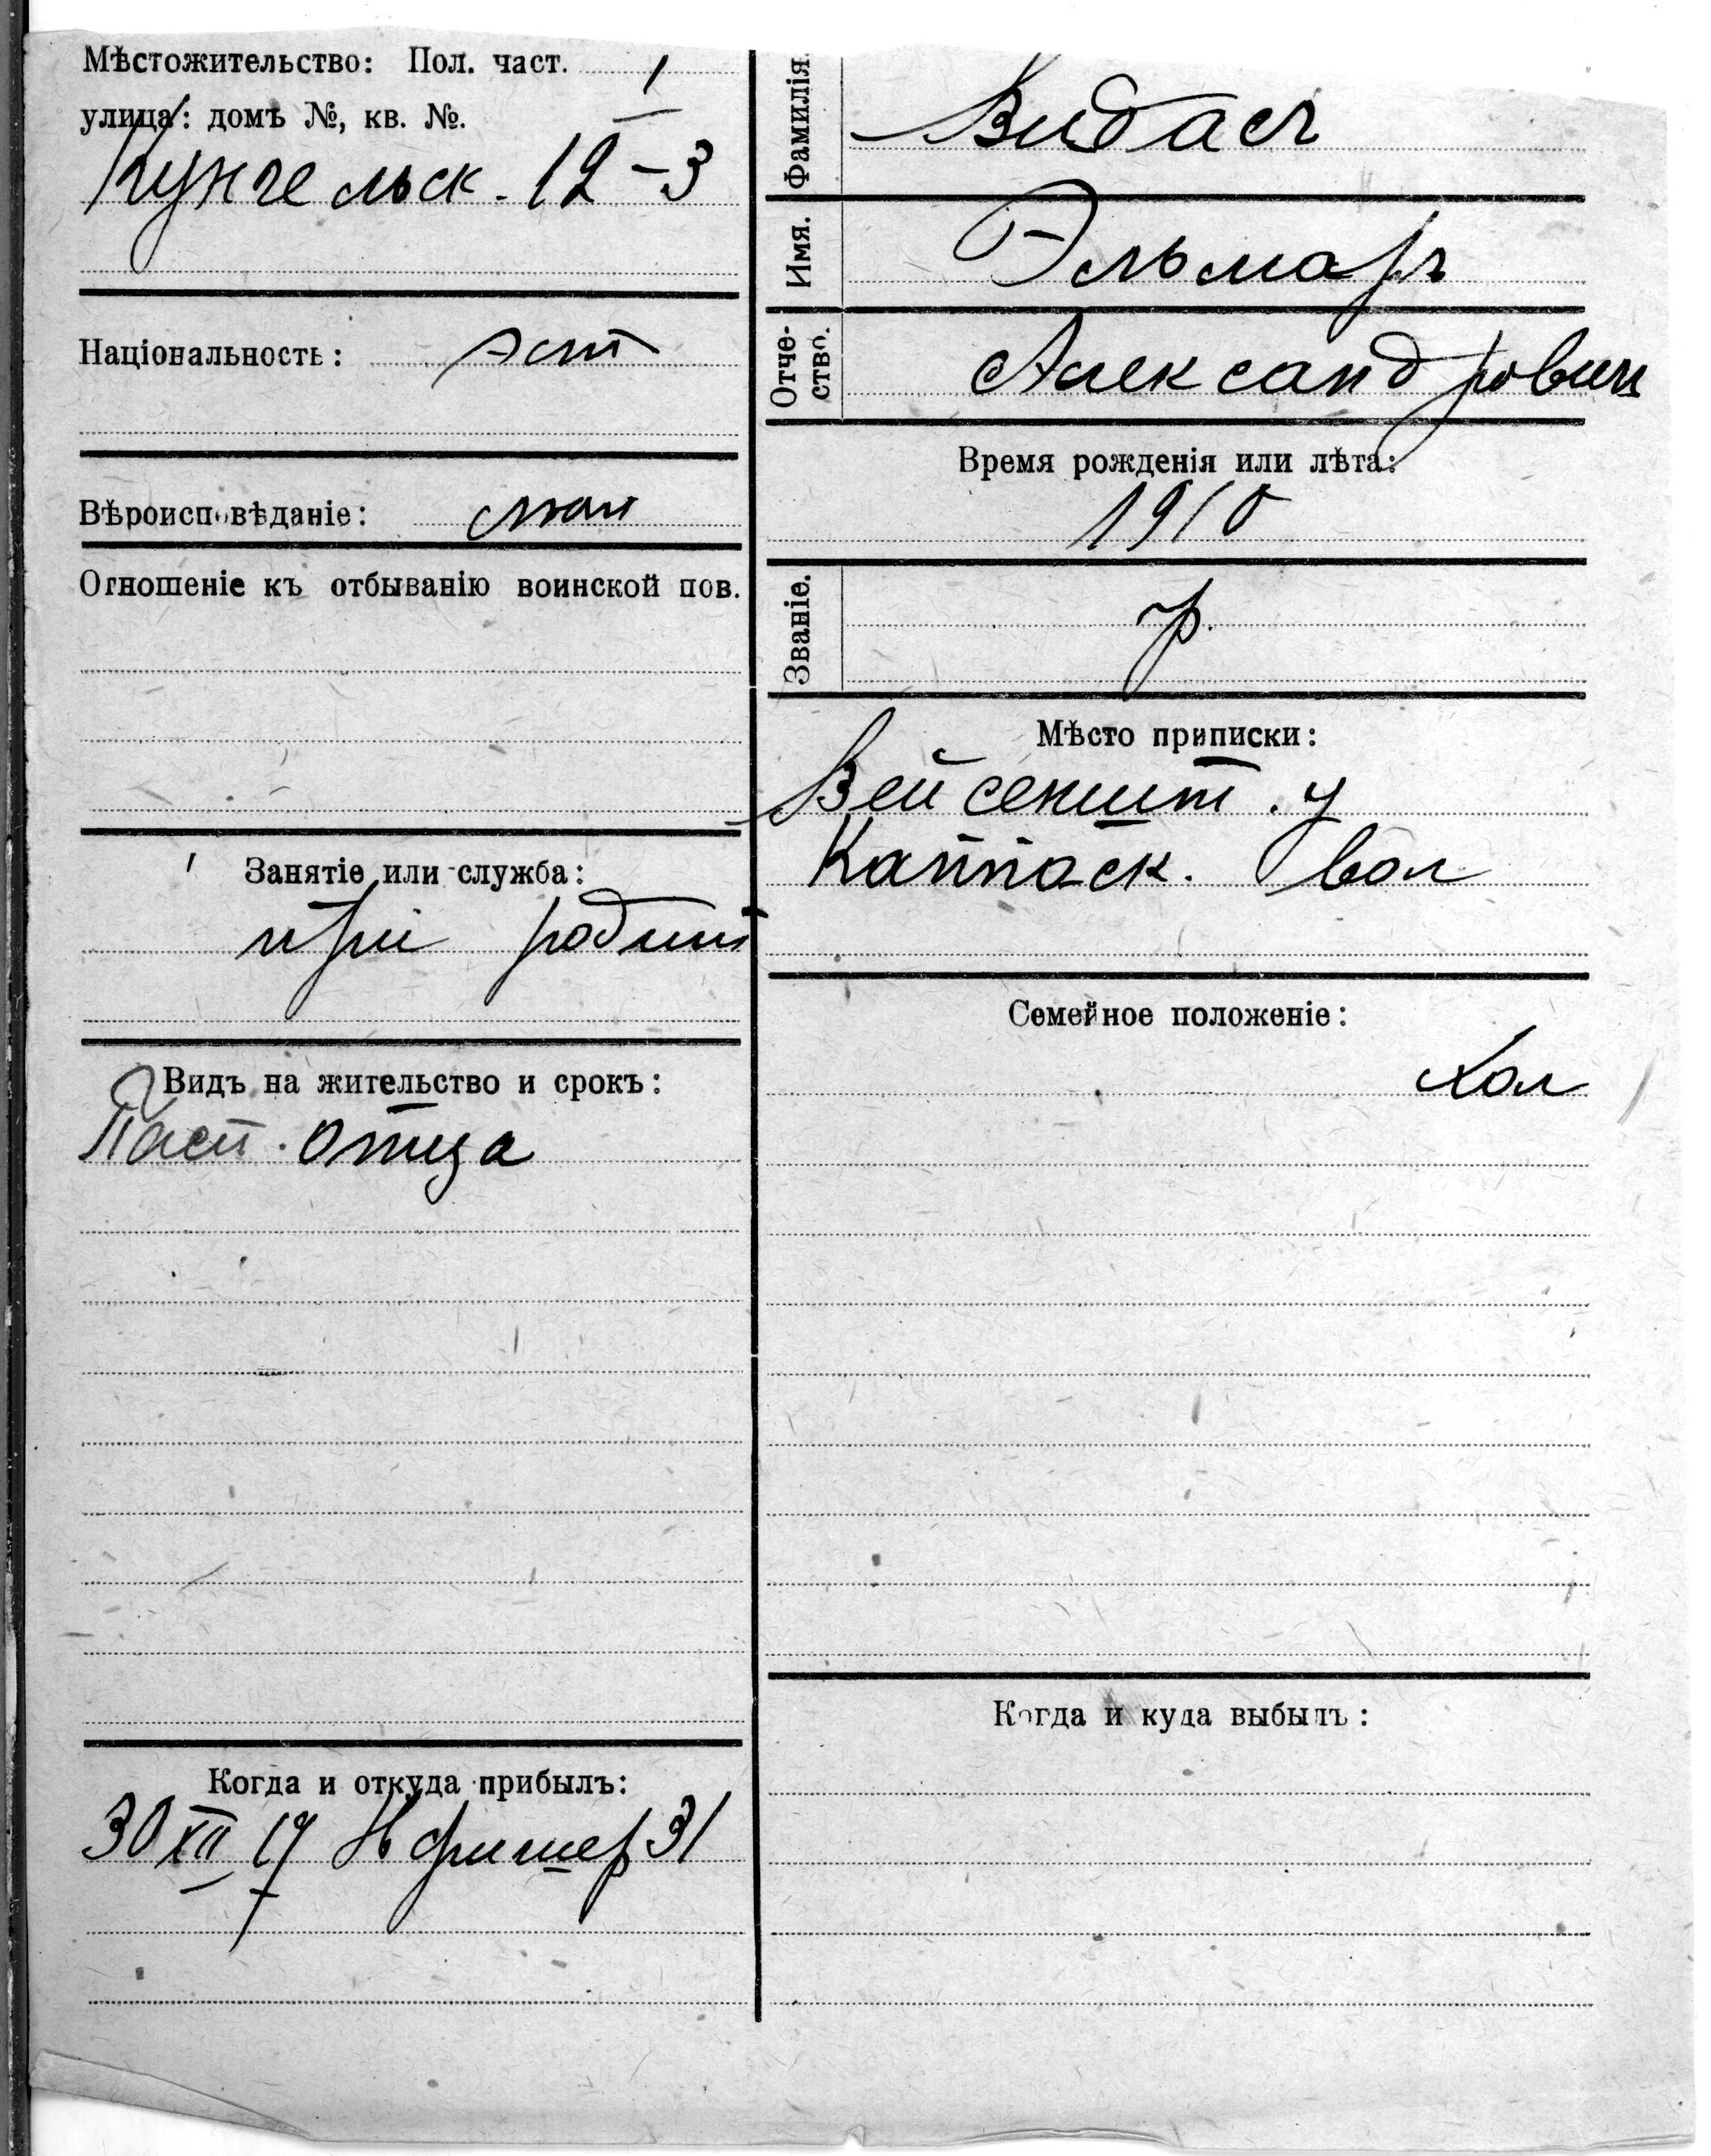 Мѣстожительство: Пол. част. 1
улица: домъ №, кв. №.
Кунгельск. 12-3
Національность: эст
Вѣроисповѣданіе: лют
Отношеніе къ отбыванію воинской пов.
Занятіе или служба:
при родит
Видъ на жительство и срокъ:
Пасп. отца
Когда и откуда прибылъ:
30 XII 17 Н фишер 31
Фамилія. Видасъ
Имя. Эльмаръ
Отчество. Александрович
Время рожденія или лѣта:
1910
Званіе. гр.
Мѣсто приписки:
Вейсеншт. у
Каппаск. вол
Семейное положеніе:
хол
Когда и куда выбылъ: